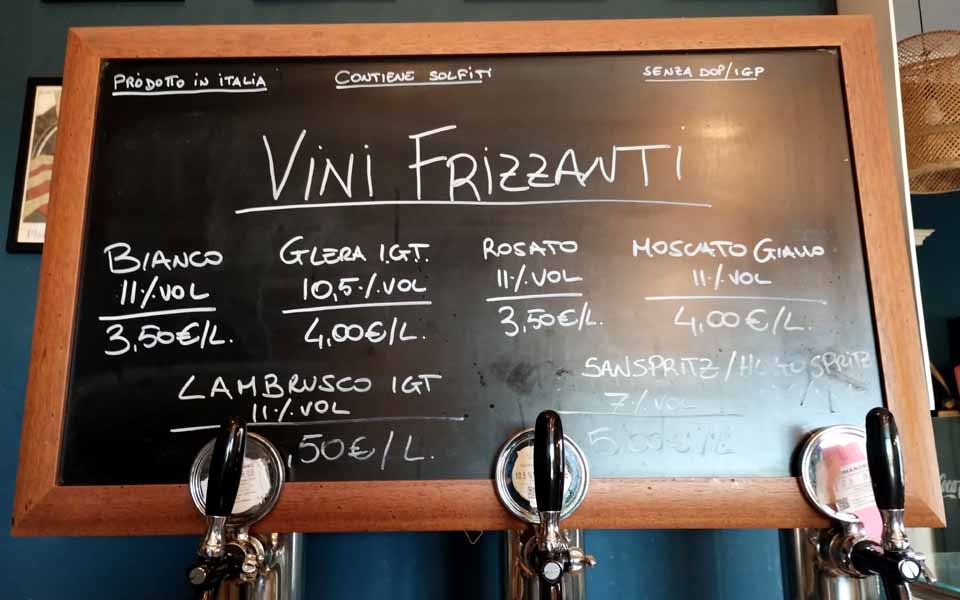 PRODOTTO IN ITALIA
CONTIENE SOLFITI
SENZA DOP/IGP
VINI FRIZZANTI
BIANCO
11% VOL
3,50€/L.
GLERA I.G.T.
10,5% VOL
4,00€/L.
ROSATO
11% VOL
3,50€/L.
MOSCATO GIALLO
11% VOL
4,00€/L.
LAMBRUSCO IGT
11% VOL
,50€/L.
SANSPRITZ/HUGO SPRITZ
7% VOL
5,00€/L